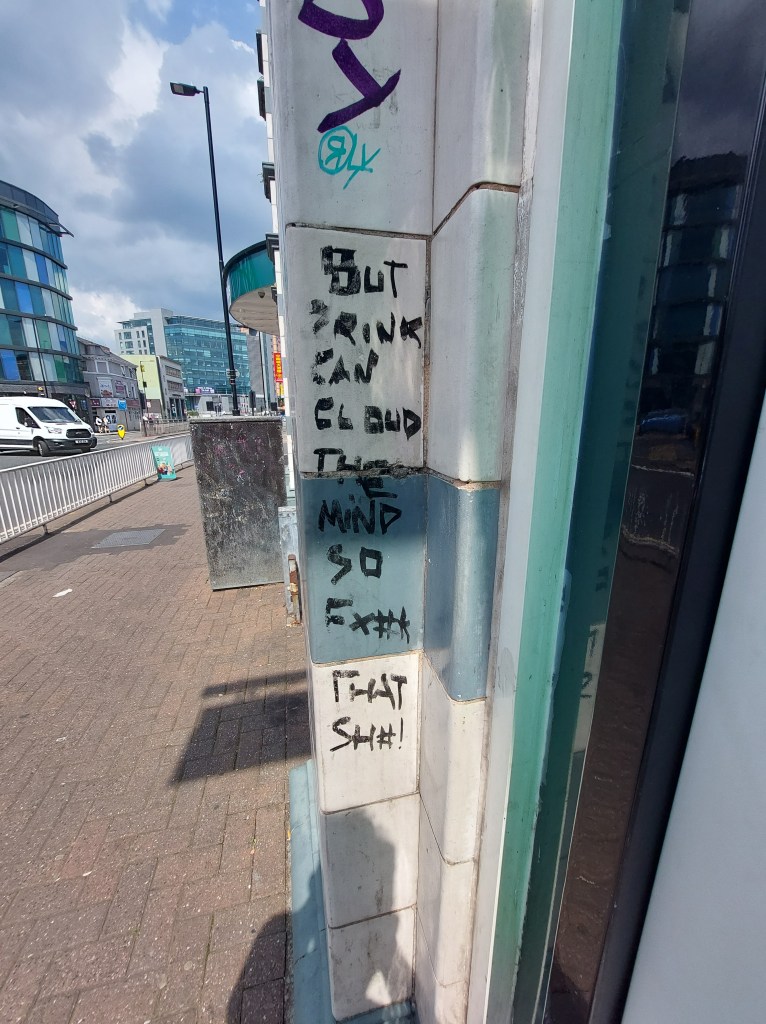 BUT
DRINK
CAN
CLOUD
THE
MIND
SO
FX##
THAT
SH#!